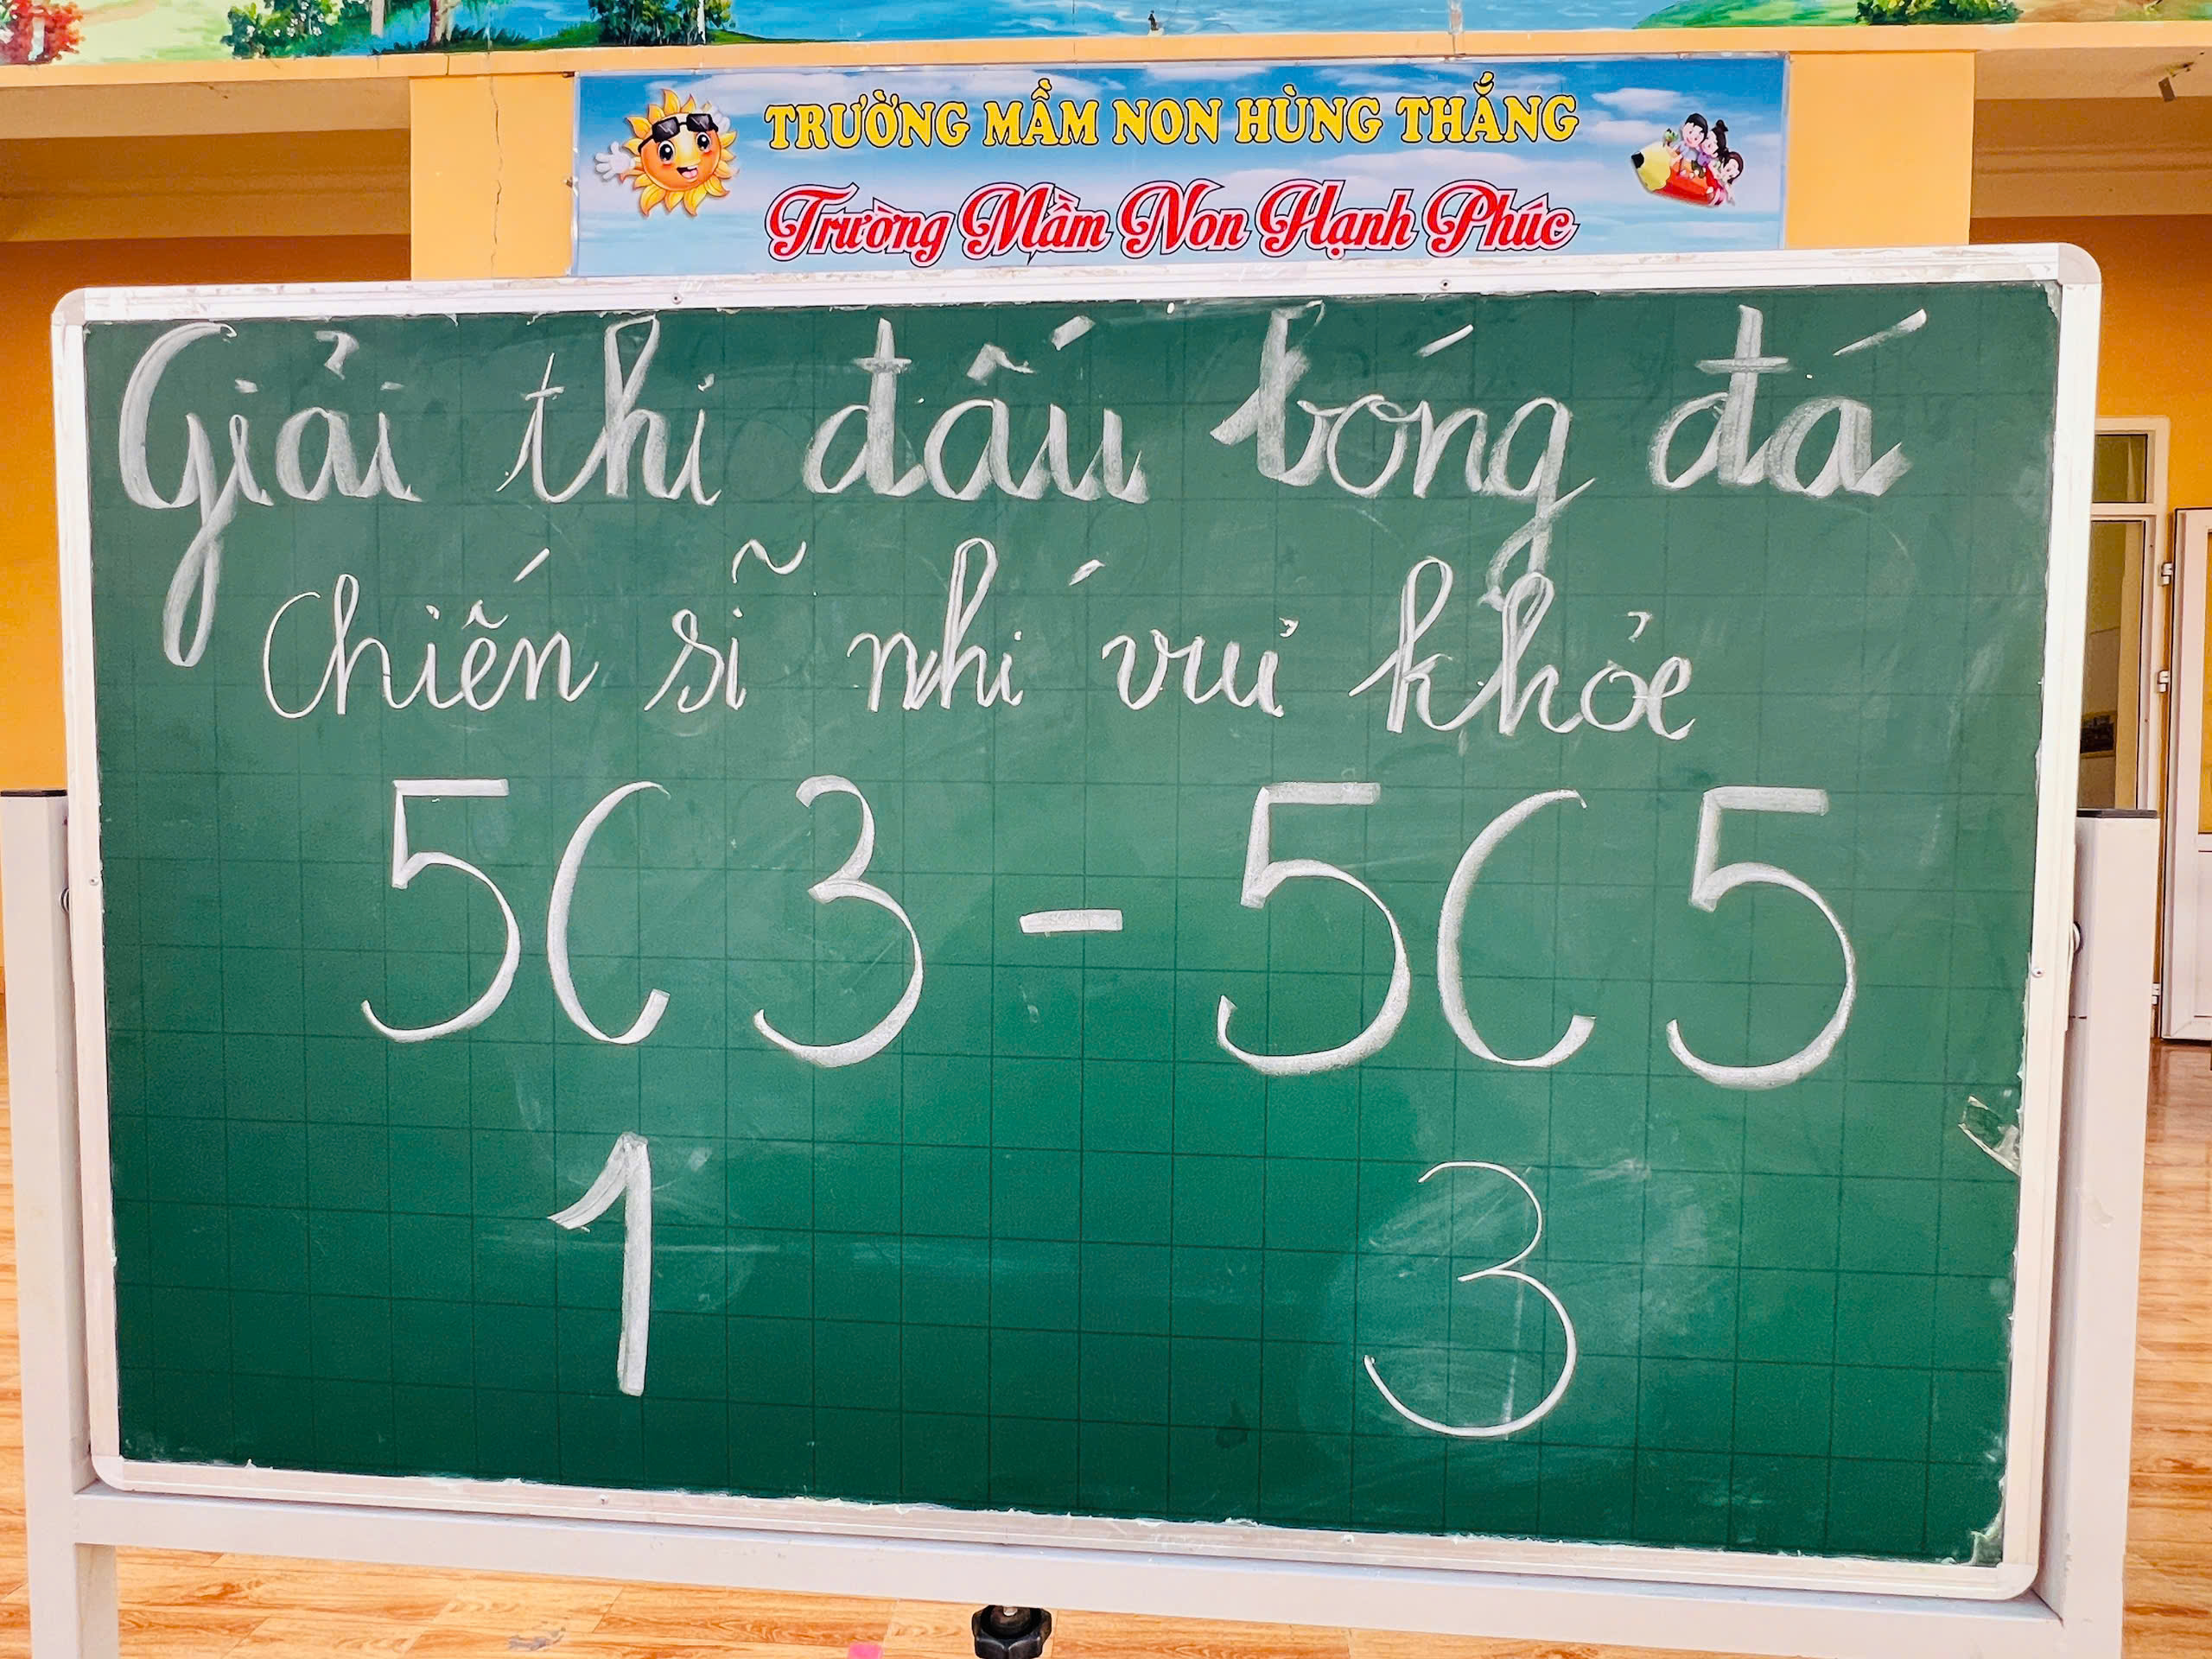 TRƯỜNG MẦM NON HÙNG THẮNG
Trường Mầm Non Hạnh Phúc
Giải thi đấu bóng đá
Chiến sĩ nhí vui khỏe
5C3 - 5C5
1 3